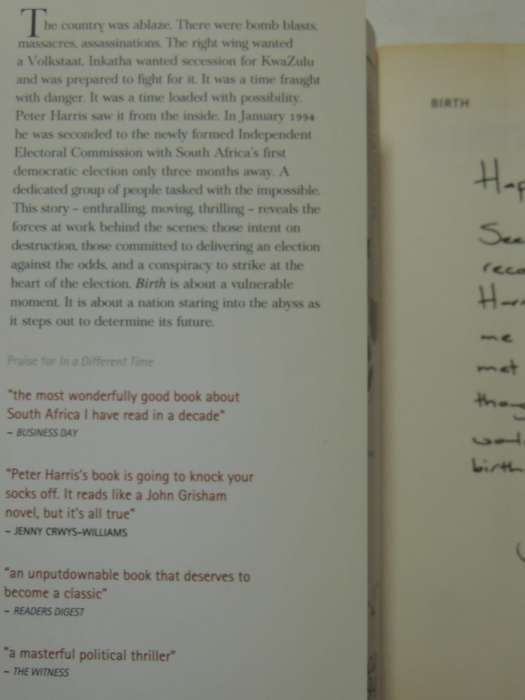 The country was ablaze. There were bomb blasts,
massacres, assassinations. The right wing wanted
a Volkstaat. Inkatha wanted secession for KwaZulu
and was prepared to fight for it. It was a time fraught
with danger. It was a time loaded with possibility.
Peter Harris saw it from the inside. In January 1994
he was seconded to the newly formed Independent
Electoral Commission with South Africa's first
democratic election only three months away. A
dedicated group of people tasked with the impossible.
This story – enthralling, moving, thrilling – reveals the
forces at work behind the scenes: those intent on
destruction, those committed to delivering an election
against the odds, and a conspiracy to strike at the
heart of the election. Birth is about a vulnerable
moment. It is about a nation staring into the abyss as
it steps out to determine its future.
Praise for In a Different Time
"the most wonderfully good book about
South Africa I have read in a decade"
– BUSINESS DAY
"Peter Harris's book is going to knock your
socks off. It reads like a John Grisham
novel, but it's all true"
– JENNY CRWYS-WILLIAMS
"an unputdownable book that deserves to
become a classic"
– READERS DIGEST
"a masterful political thriller"
– THE WITNESS
BIRTH
me
met
birth